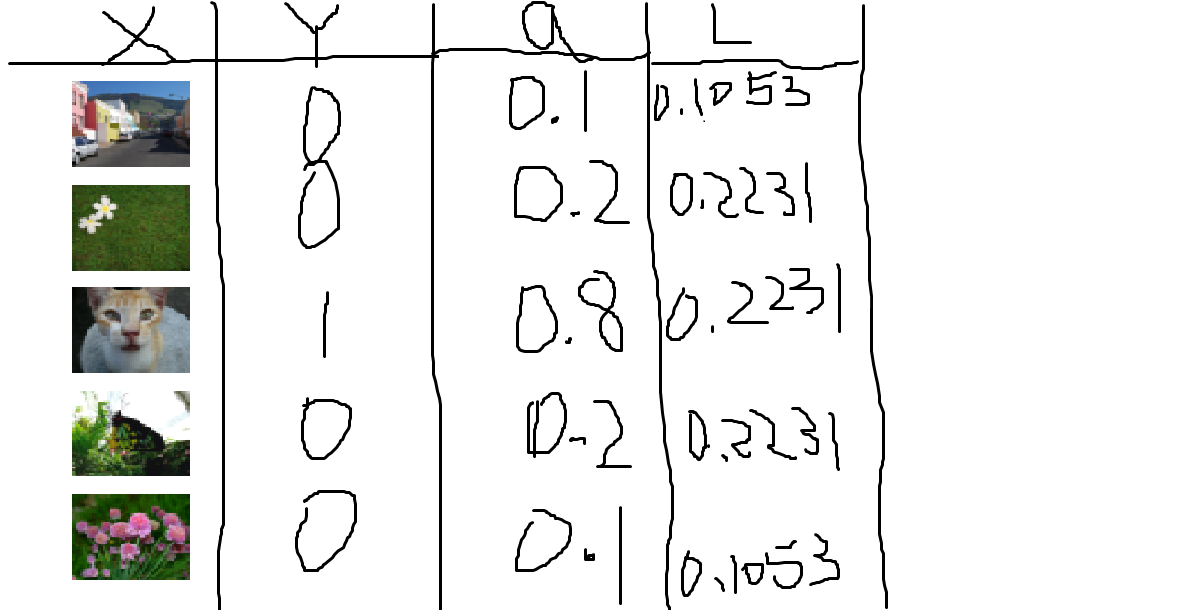 X Y a L
0 0.1 0.1053
0 0.2 0.2231
1 0.8 0.2231
0 0.2 0.2231
0 0.1 0.1053